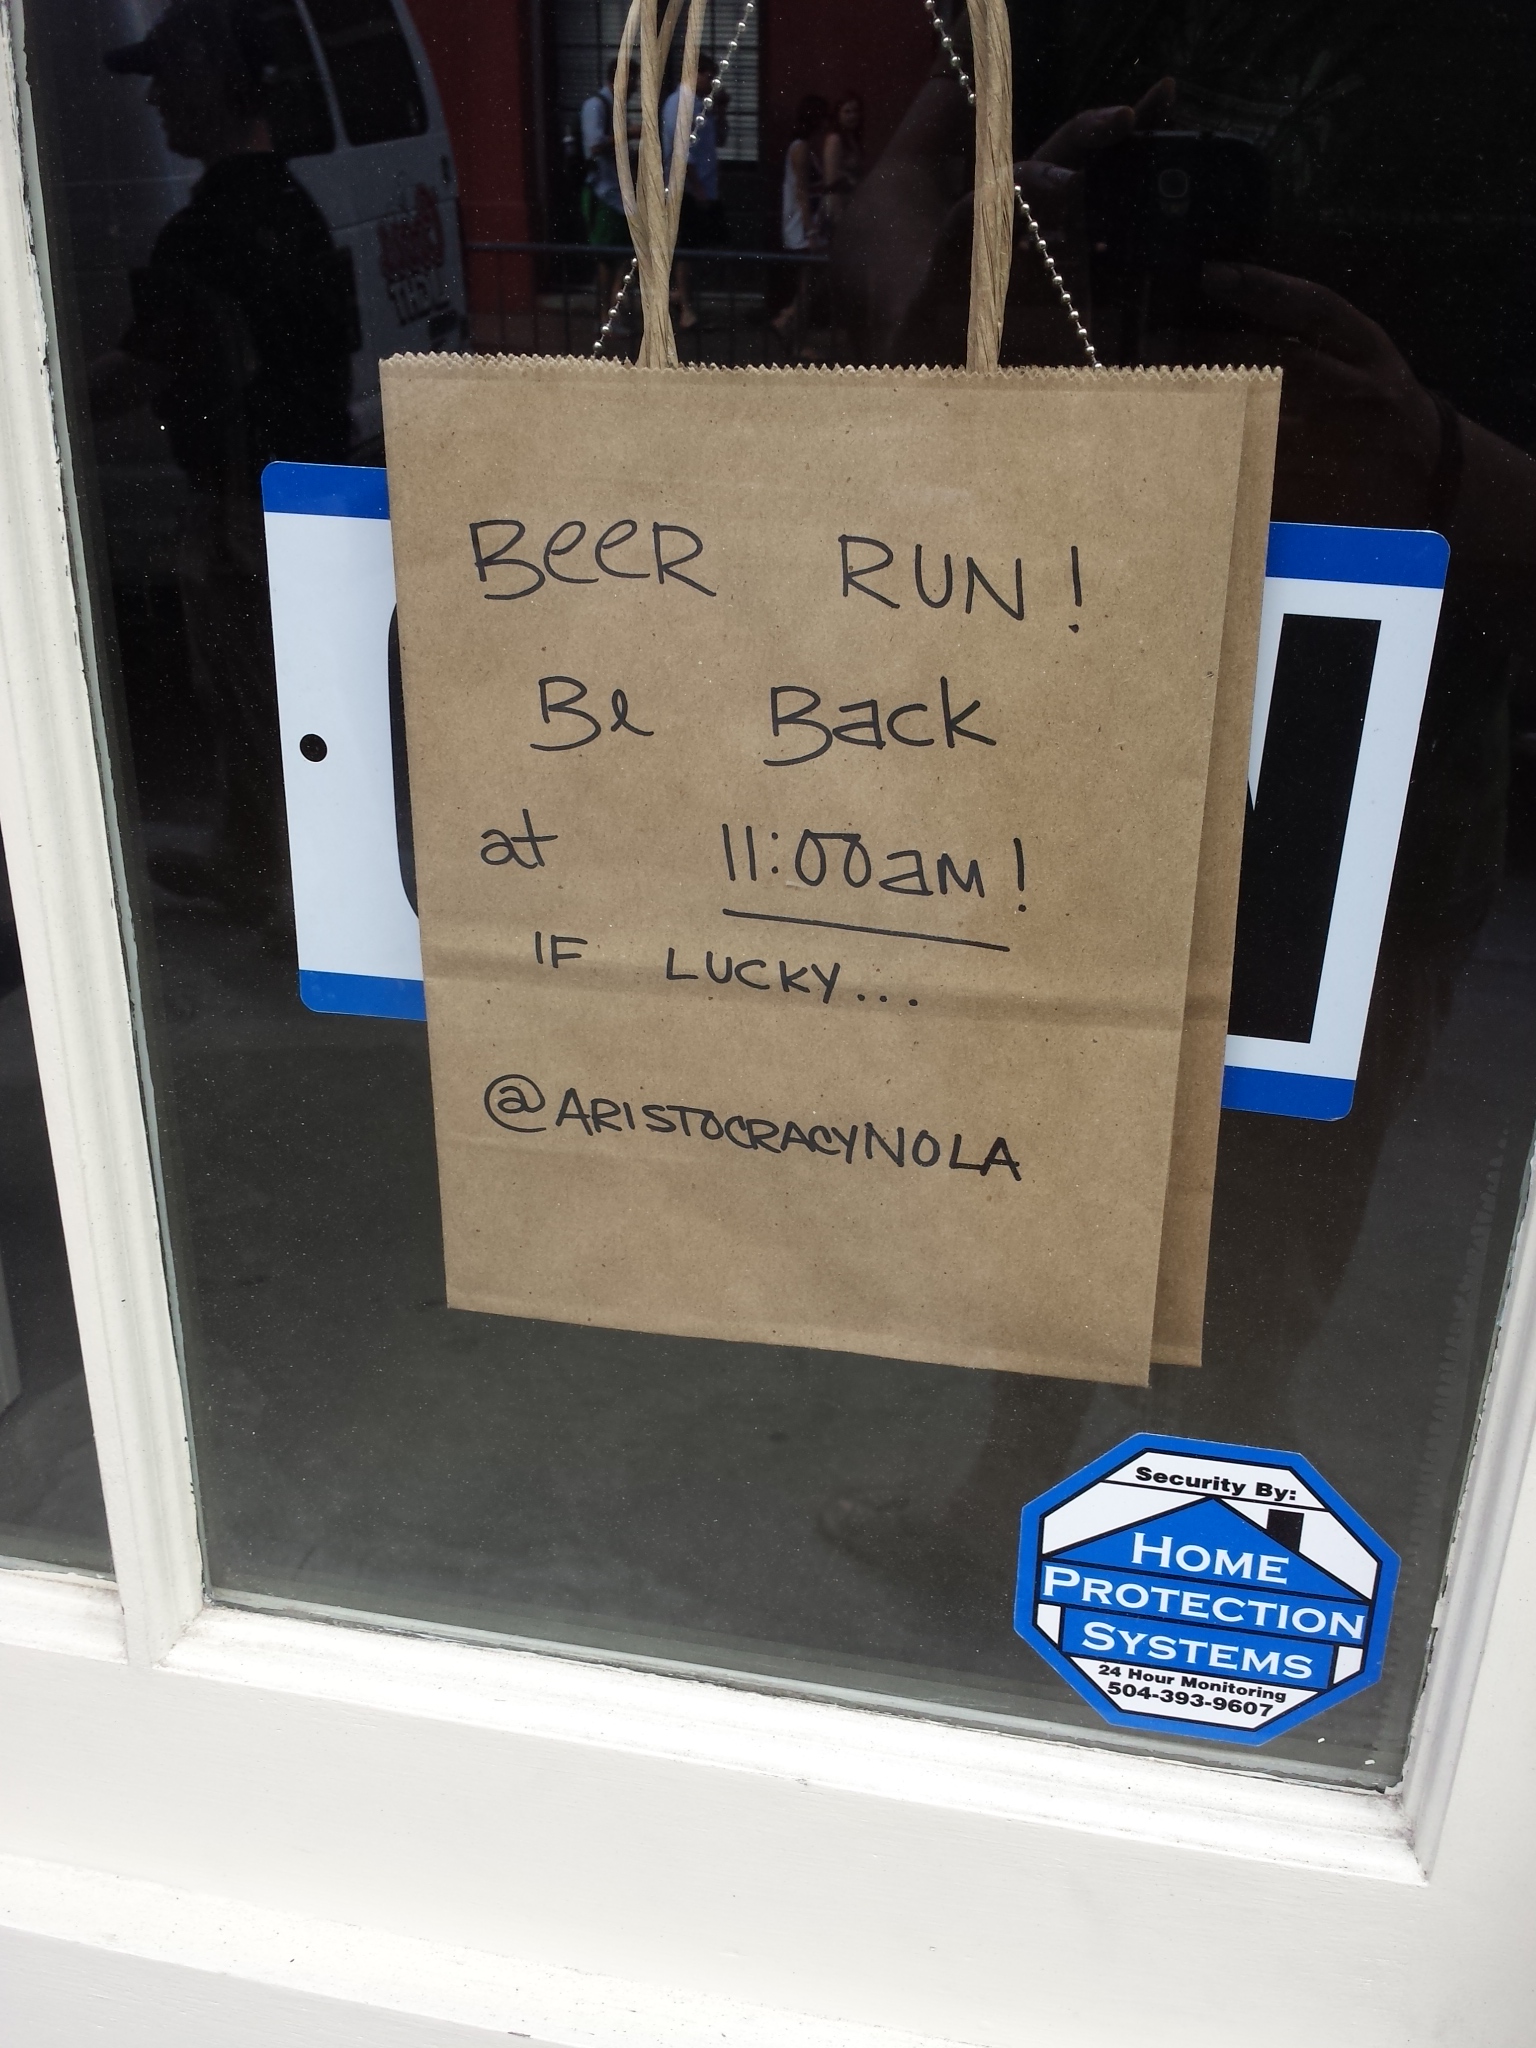 BeeR RUN!
Be Back
at 11:00am!
IF LUCKY...
@ARISTOCRACYNOLA
Security By:
HOME
PROTECTION
SYSTEMS
24 Hour Monitoring
504-393-9607